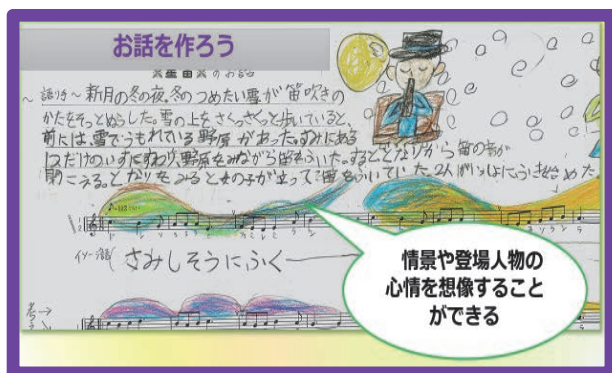 お話を作ろう
のお話
～語り～ 新月の冬の夜。冬のつめたい雪が笛吹きの
かたをそっとぬらした。雪の上を、さくっさくっと歩いていると、
前には、雪でうもれている野原があった。すみにある
1つだけのいすにすわり、野原をみながら笛をふいた。するととなりから笛の音が
聞こえる。となりをみると女の子が立って笛をふいていた。2人がいっしょにふき始めた。
さみしそうにふく
情景や登場人物の
心情を想像すること
ができる